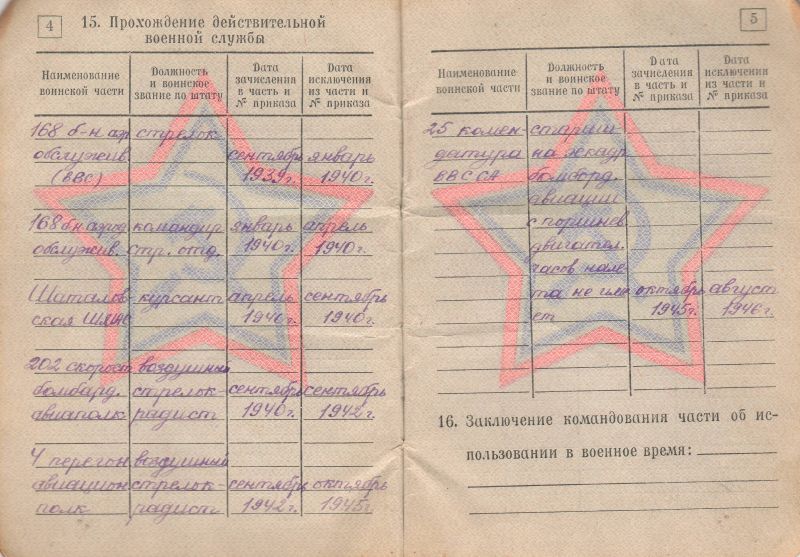 4
15. Прохождение действительной
военной службы
Наименование воинской части
Должность и воинское звание по штату
Дата зачисления в часть и № приказа
Дата исключения из части и № приказа
168 б-н аэр стрелок
обслужив. сентябрь январь
(ВВС) 1939г. 1940г.
168 бн аэрод командир январь апрель
обслужив. стр. отд. 1940г. 1940г.
Шаталов- курсант апрель сентябрь
ская 1940г. 1940г.
202 скорост воздушный
бомбард. стрелок- сентябрь сентябрь
авиаполк радист 1940г. 1942г.
4 перегон воздушный
авиацион стрелок- сентябрь октябрь
полк радист 1942г. 1945г.
5
Наименование воинской части
Должность и воинское звание по штату
Дата зачисления в часть и № приказа
Дата исключения из части и № приказа
25 комен- старши-
датура на эскадр
ВВС СА бомбард.
авиации
с поршнев
двигател.
часов нале
та не име октябрь август
ет 1945г. 1946г.
16. Заключение командования части об ис-
пользовании в военное время: